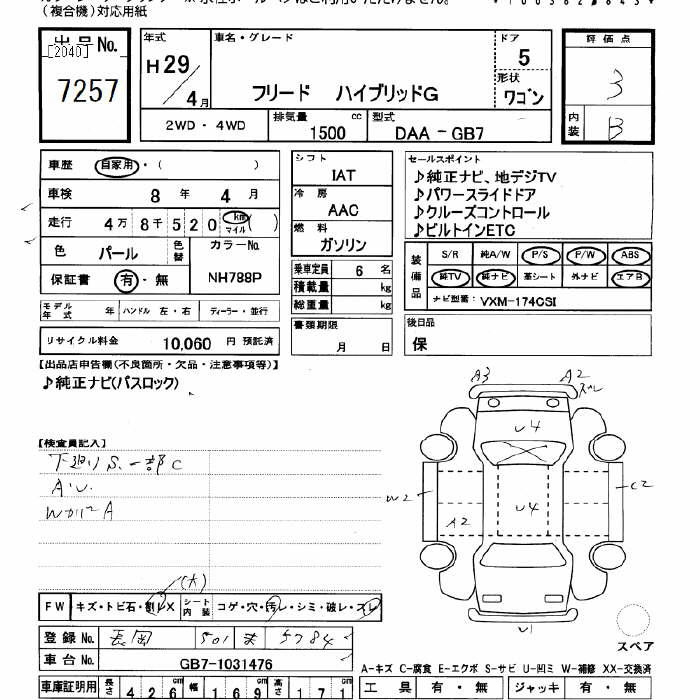 (複合機)対応用紙
出品No. [2040] 7257
年式 H29/4月
車名・グレード フリード ハイブリッドG
ドア 5
形状 ワゴン
評価点 3
内装 B
2WD・4WD
排気量 1500 cc
型式 DAA-GB7
車歴 自家用・( )
車検 8年 4月
走行 4万8千520 km マイル ( )
色 パール 色替
カラーNo. NH788P
保証書 有・無
モデル年式 年 ハンドル 左・右 ディーラー・並行
リサイクル料金 10,060 円 預託済
シフト IAT
冷房 AAC
燃料 ガソリン
乗車定員 6 名
積載量 kg
総重量 kg
書類期限 月 日
セールスポイント
♪純正ナビ、地デジTV
♪パワースライドドア
♪クルーズコントロール
♪ビルトインETC
装備品 S/R 純A/W P/S P/W ABS
純TV 純ナビ 革シート 外ナビ エアB
ナビ型番: VXM-174CSI
後日品
保
【出品店申告欄(不良箇所・欠品・注意事項等)】
♪純正ナビ(パスロック)
【検査員記入】
下廻りS、一部C
A、U、
WガラスA
A3 A2
U4
W2 U4 C2
A2
U1
スペア
FW キズ・トビ石・割レX (大)
シート内装 コゲ・穴・汚レ・シミ・破レ・スレ
登録No. 長岡 501 ま 5784
車台No. GB7-1031476
車庫証明用 長さ 426 幅 169 高さ 171
A-キズ C-腐食 E-エクボ S-サビ U-凹ミ W-補修 XX-交換済
工具 有・無 ジャッキ 有・無